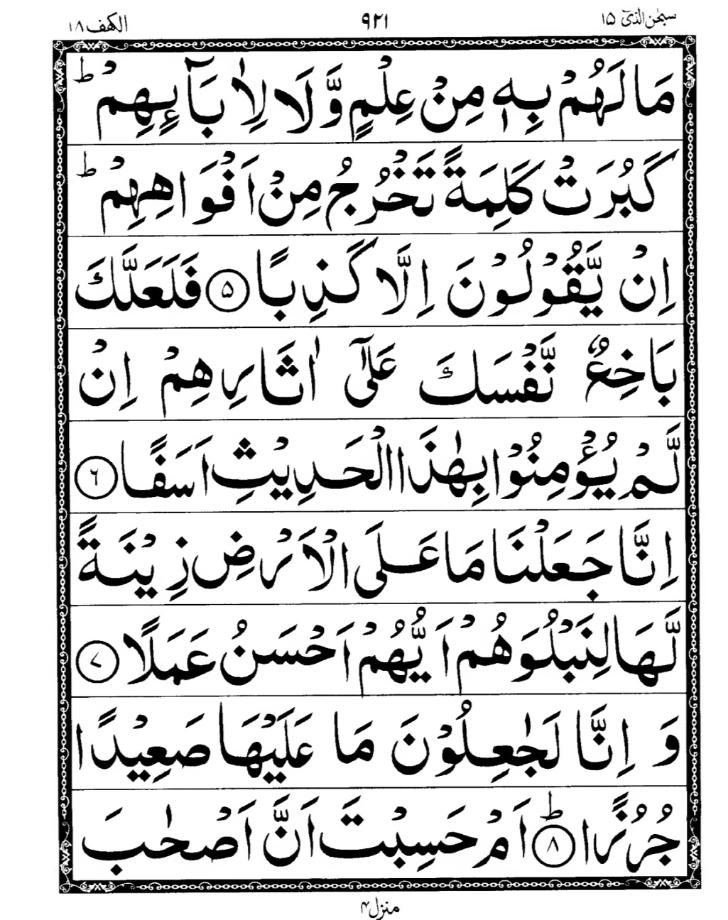 سبحٰن الذیٓ ۱۵ ۹۲۱ الکهف ۱۸
مَا لَهُمْ بِهٖ مِنْ عِلْمٍ وَّلَا لِاٰبَآئِهِمْ ؕ
كَبُرَتْ كَلِمَةً تَخْرُجُ مِنْ اَفْوَاهِهِمْ ؕ
اِنْ يَّقُوْلُوْنَ اِلَّا كَذِبًا ۵ فَلَعَلَّكَ
بَاخِعٌ نَّفْسَكَ عَلٰٓى اٰثَارِهِمْ اِنْ
لَّمْ يُؤْمِنُوْا بِهٰذَا الْحَدِيْثِ اَسَفًا ۶
اِنَّا جَعَلْنَا مَا عَلَى الْاَرْضِ زِيْنَةً
لَّهَا لِنَبْلُوَهُمْ اَيُّهُمْ اَحْسَنُ عَمَلًا ۷
وَ اِنَّا لَجٰعِلُوْنَ مَا عَلَيْهَا صَعِيْدًا
جُرُزًا ؕ ۸ اَمْ حَسِبْتَ اَنَّ اَصْحٰبَ
منزل ۴